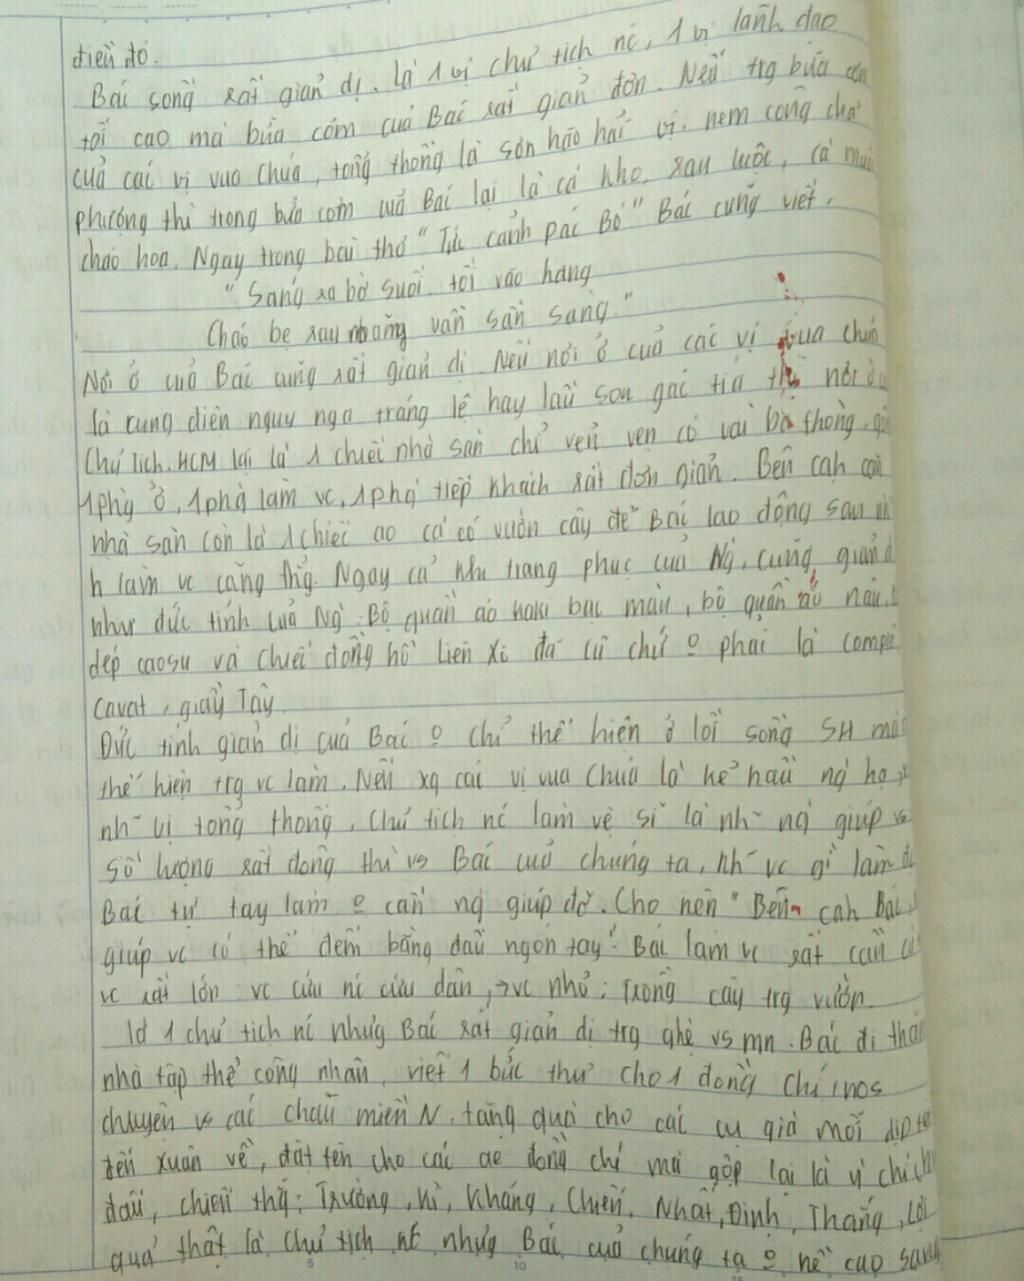 điều đó.
Bác sống rất giản dị. Là 1 vị chủ tịch nc, 1 vị lãnh đạo
tối cao mà bữa cơm của Bác rất giản đơn. Nếu trg bữa cơm
của các vị vua chúa, tổng thống là sơn hào hải vị, nem công chả
phượng thì trong bữa cơm của Bác lại là cá kho, rau luộc, cà muối
cháo hoa. Ngay trong bài thơ "Tức cảnh Pác Bó" Bác cũng viết.
"Sáng ra bờ suối, tối vào hang
Cháo bẹ rau măng vẫn sẵn sàng."
Nơi ở của Bác cũng rất giản dị. Nếu nơi ở của các vị vua chúa
là cung điện nguy nga tráng lệ hay lầu son gác tía thì nơi ở
Chủ tịch HCM lại là 1 chiếc nhà sàn chỉ vẻn vẹn có vài ba phòng,
1 phg ở, 1 phg làm vc, 1 phg tiếp khách rất đơn giản. Bên cạh
nhà sàn còn là 1 chiếc ao cá có vườn cây để Bác lao động sau
h làm vc căng thg. Ngay cả như trang phục của Ng, cũng giản d
như đức tính của Ng. Bộ quần áo kaki bạc màu, bộ quần áo nâu,
dép caosu và chiếc đồng hồ Liên Xô đã cũ chứ o phải là complê
cavat, giày Tây.
Đức tính giản dị của Bác o chỉ thể hiện ở lối sống SH mà
thể hiện trg vc làm. Nếu xq các vị vua chúa là kẻ hầu ng hạ,
nh~ vị tổng thống, chủ tịch nc làm vệ sĩ là nh~ ng giúp vc
số lượng rất đông thì vs Bác của chúng ta, nh~ vc gì làm đc
Bác tự tay làm o cần ng giúp đỡ. Cho nên "Bên cạh Bác,
giúp vc có thể đếm bằng đầu ngón tay". Bác làm vc rất cần
vc rất lớn: vc cứu nc cứu dân, → vc nhỏ: Trồng cây trg vườn.
Là 1 chủ tịch nc nhưg Bác rất giản dị trg qhệ vs mn. Bác đi thăm
nhà tập thể công nhân, viết 1 bức thư cho 1 đồng chí,
chuyện vs các cháu miền N, tặng quà cho các cụ già mỗi dịp tết
đến xuân về, đặt tên cho các ae đồng chí mà gộp lại là ý chí
đấu, chiến thg: Trường, Kì, Kháng, Chiến, Nhất, Định, Thắng, Lợi
quả thật là chủ tịch nc nhưg Bác của chúng ta o hề cao sang